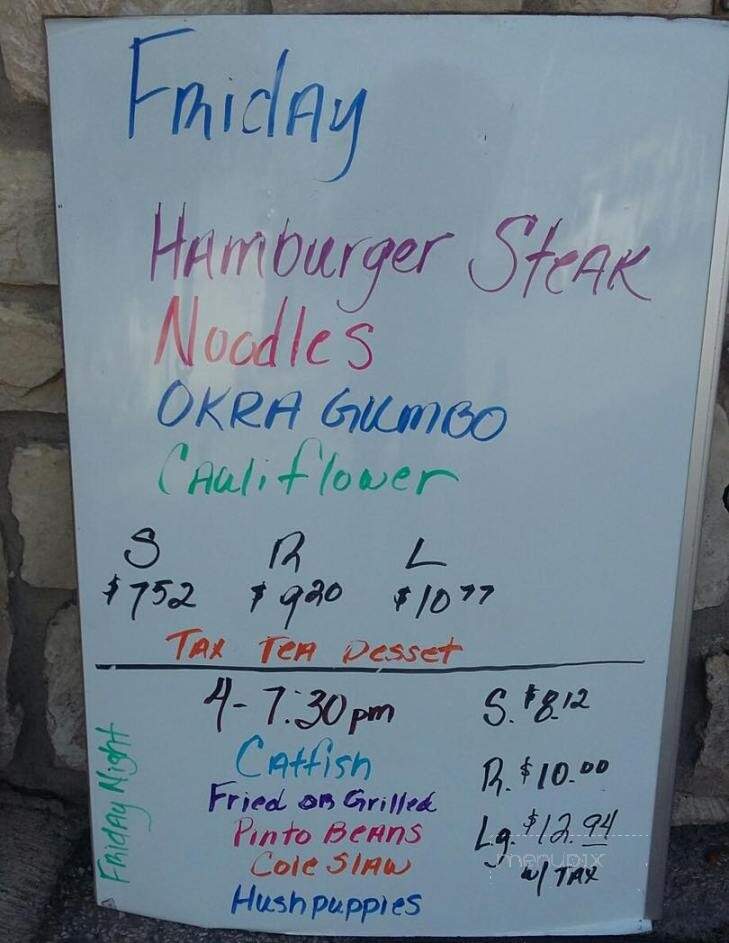 Friday
Hamburger Steak
Noodles
OKRA Gumbo
Cauliflower
S R L
$7.52 $9.20 $10.77
Tax Tea Desset
Friday Night
4-7:30pm
Catfish
Fried or Grilled
Pinto Beans
Cole Slaw
Hushpuppies
S. $8.12
R. $10.00
Lg. $12.94
w/ TAX
menupix